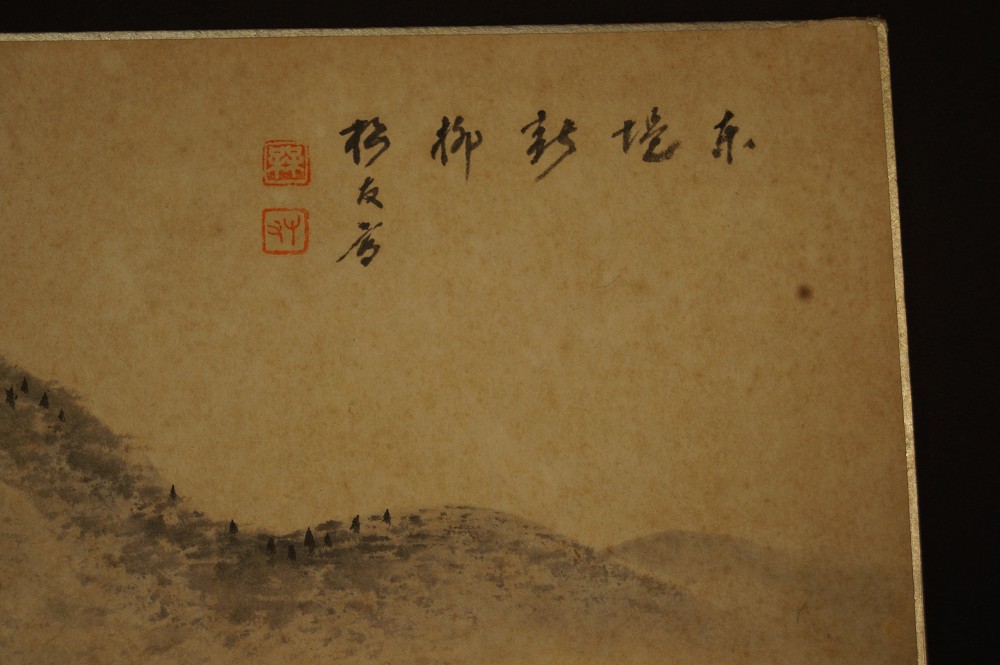 東堤新柳
松友寫